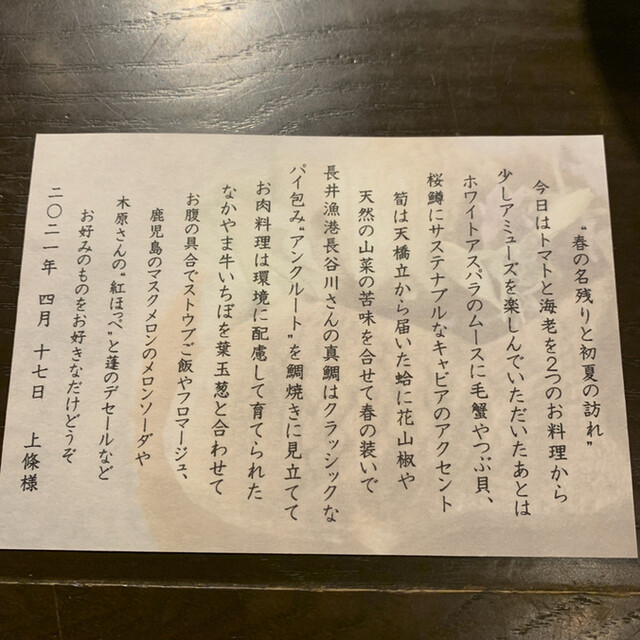 “春の名残りと初夏の訪れ”
今日はトマトと海老を2つのお料理から
少しアミューズを楽しんでいただいたあとは
ホワイトアスパラのムースに毛蟹やつぶ貝、
桜鱒にサステナブルなキャビアのアクセント
筍は天橋立から届いた蛤に花山椒や
天然の山菜の苦味を合せて春の装いで
長井漁港長谷川さんの真鯛はクラッシックな
パイ包み“アンクルート”を鯛焼きに見立てて
お肉料理は環境に配慮して育てられた
なかやま牛いちぼを葉玉葱と合わせて
お腹の具合でストウブご飯やフロマージュ、
鹿児島のマスクメロンのメロンソーダや
木原さんの“紅ほっぺ”と蓬のデセールなど
お好みのものをお好きなだけどうぞ
二〇二一年 四月 十七日 上條様